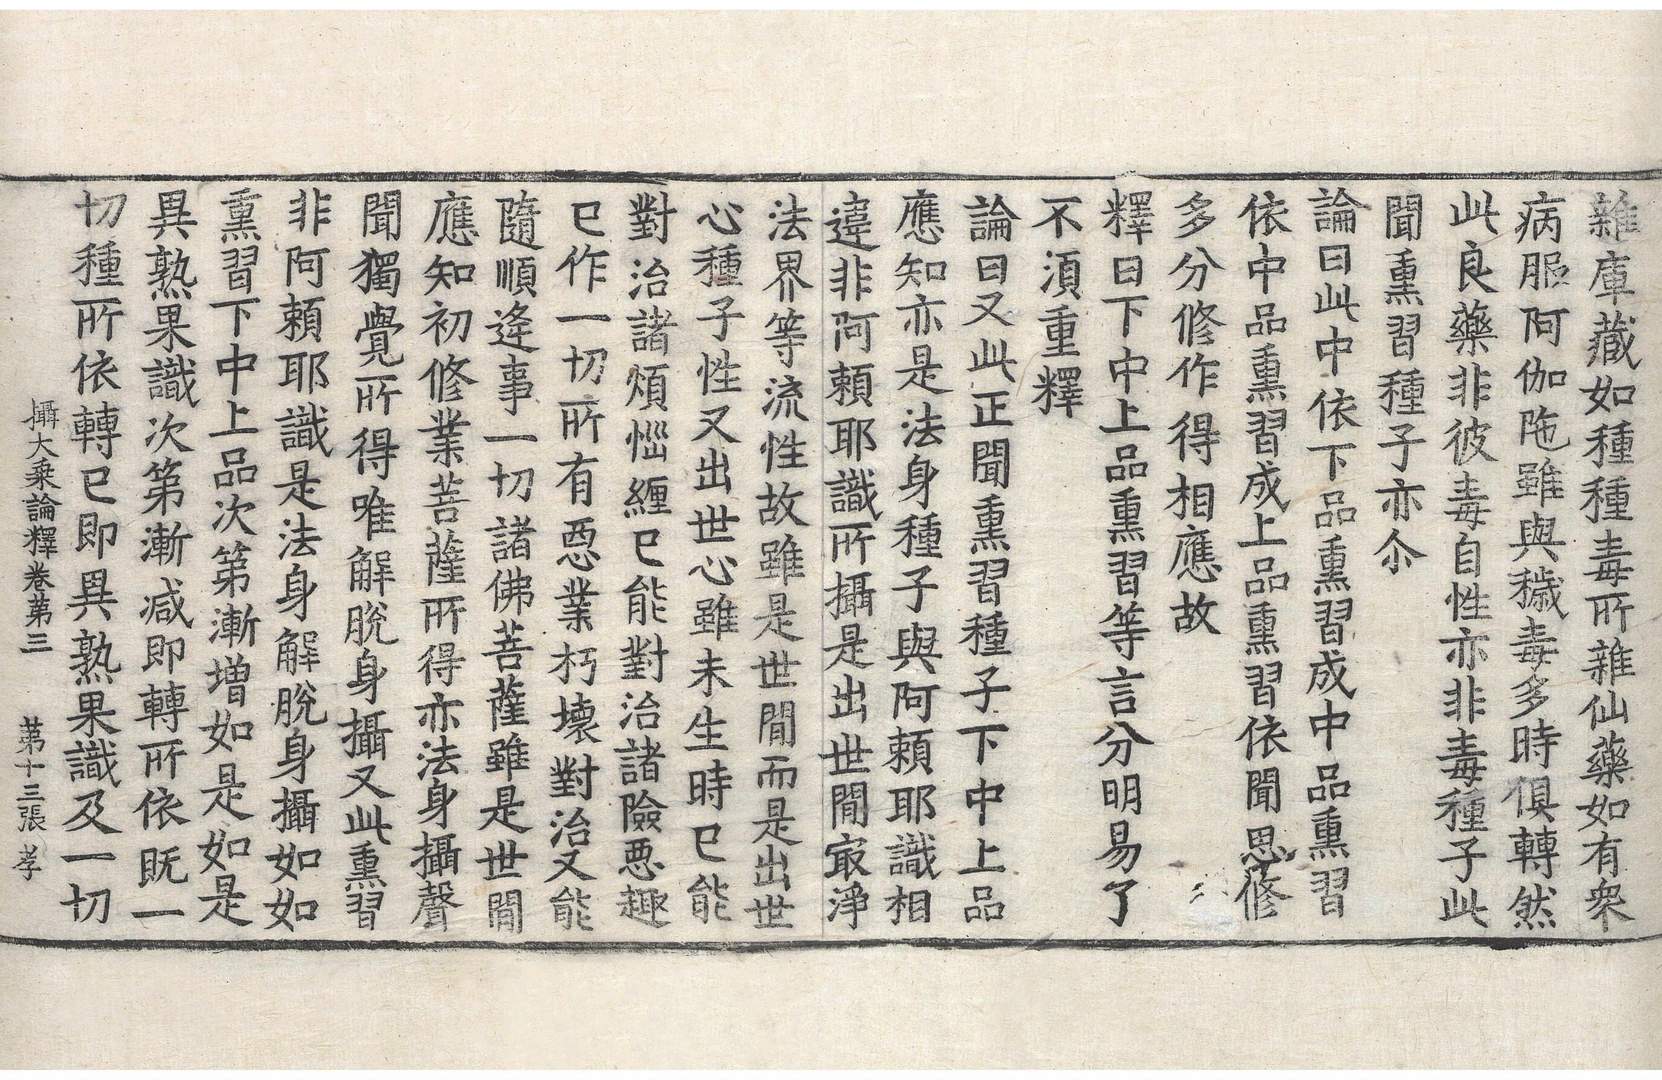 雜庫藏如種種毒所雜仙藥如有衆
病服阿伽陁雖與穢毒多時俱轉然
此良藥非彼毒自性亦非毒種子此
聞熏習種子亦尒
論曰此中依下品熏習成中品熏習
依中品熏習成上品熏習依聞思修
多分修作得相應故
釋曰下中上品熏習等言分明易了
不須重釋
論曰又此正聞熏習種子下中上品
應知亦是法身種子與阿賴耶識相
違非阿賴耶識所攝是出世間㝡淨
法界等流性故雖是世間而是出世
心種子性又出世心雖未生時已能
對治諸煩惱纏已能對治諸險惡趣
已作一切所有惡業朽壞對治又能
隨順逢事一切諸佛菩薩雖是世間
應知初修業菩薩所得亦法身攝聲
聞獨覺所得唯解脫身攝又此熏習
非阿賴耶識是法身解脫身攝如如
熏習下中上品次第漸增如是如是
異熟果識次第漸減即轉所依既一
切種所依轉已即異熟果識及一切
攝大乘論釋卷第三　第十三張　孝